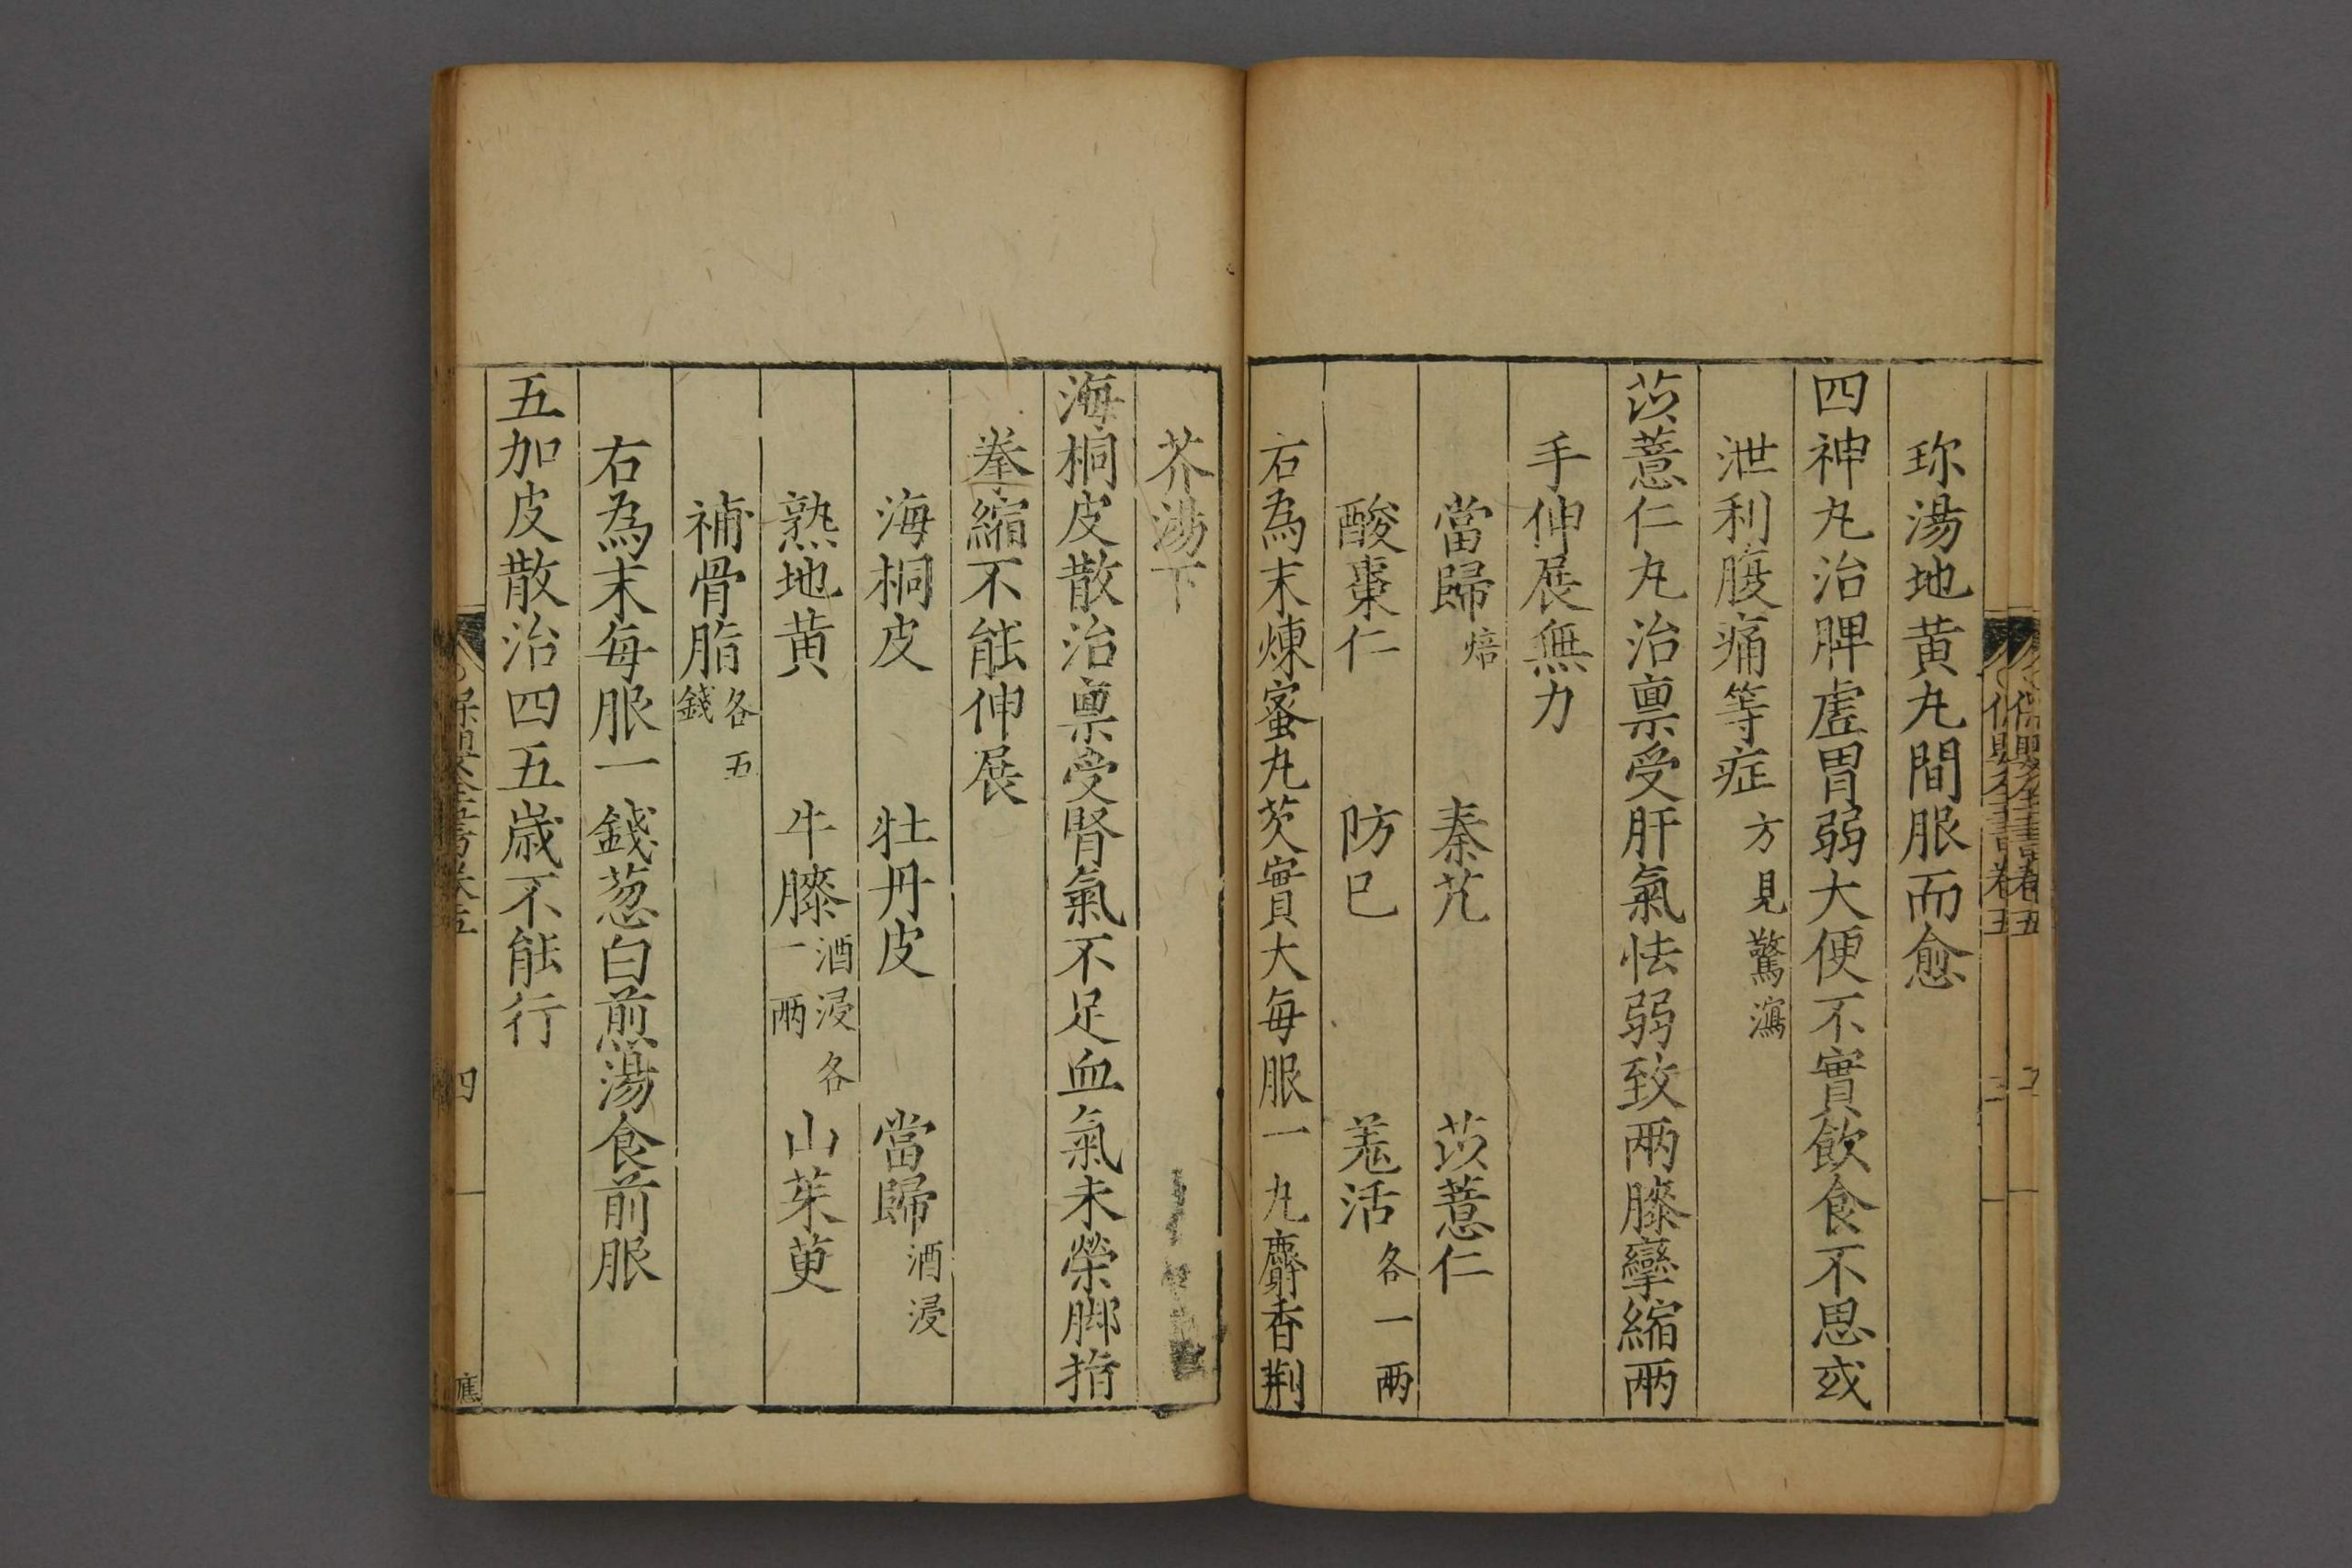 珎湯地黄丸間服而愈
四神丸治脾虛胃弱大便不實飲食不思或
泄利腹痛等症方見驚瀉
苡薏仁丸治禀受肝氣怯弱致兩膝攣縮兩
手伸展無力
當歸焙 秦艽 苡薏仁
酸棗仁 防已 羗活各一兩
右為末煉蜜丸芡實大每服一丸麝香荆
芥湯下
海桐皮散治禀受腎氣不足血氣未榮脚指
拳縮不能伸展
海桐皮 牡丹皮 當歸酒浸
熟地黄 牛膝酒浸各一兩 山茱萸
補骨脂各五錢
右為末每服一錢葱白煎湯食前服
五加皮散治四五歳不能行
保嬰全書卷五 四